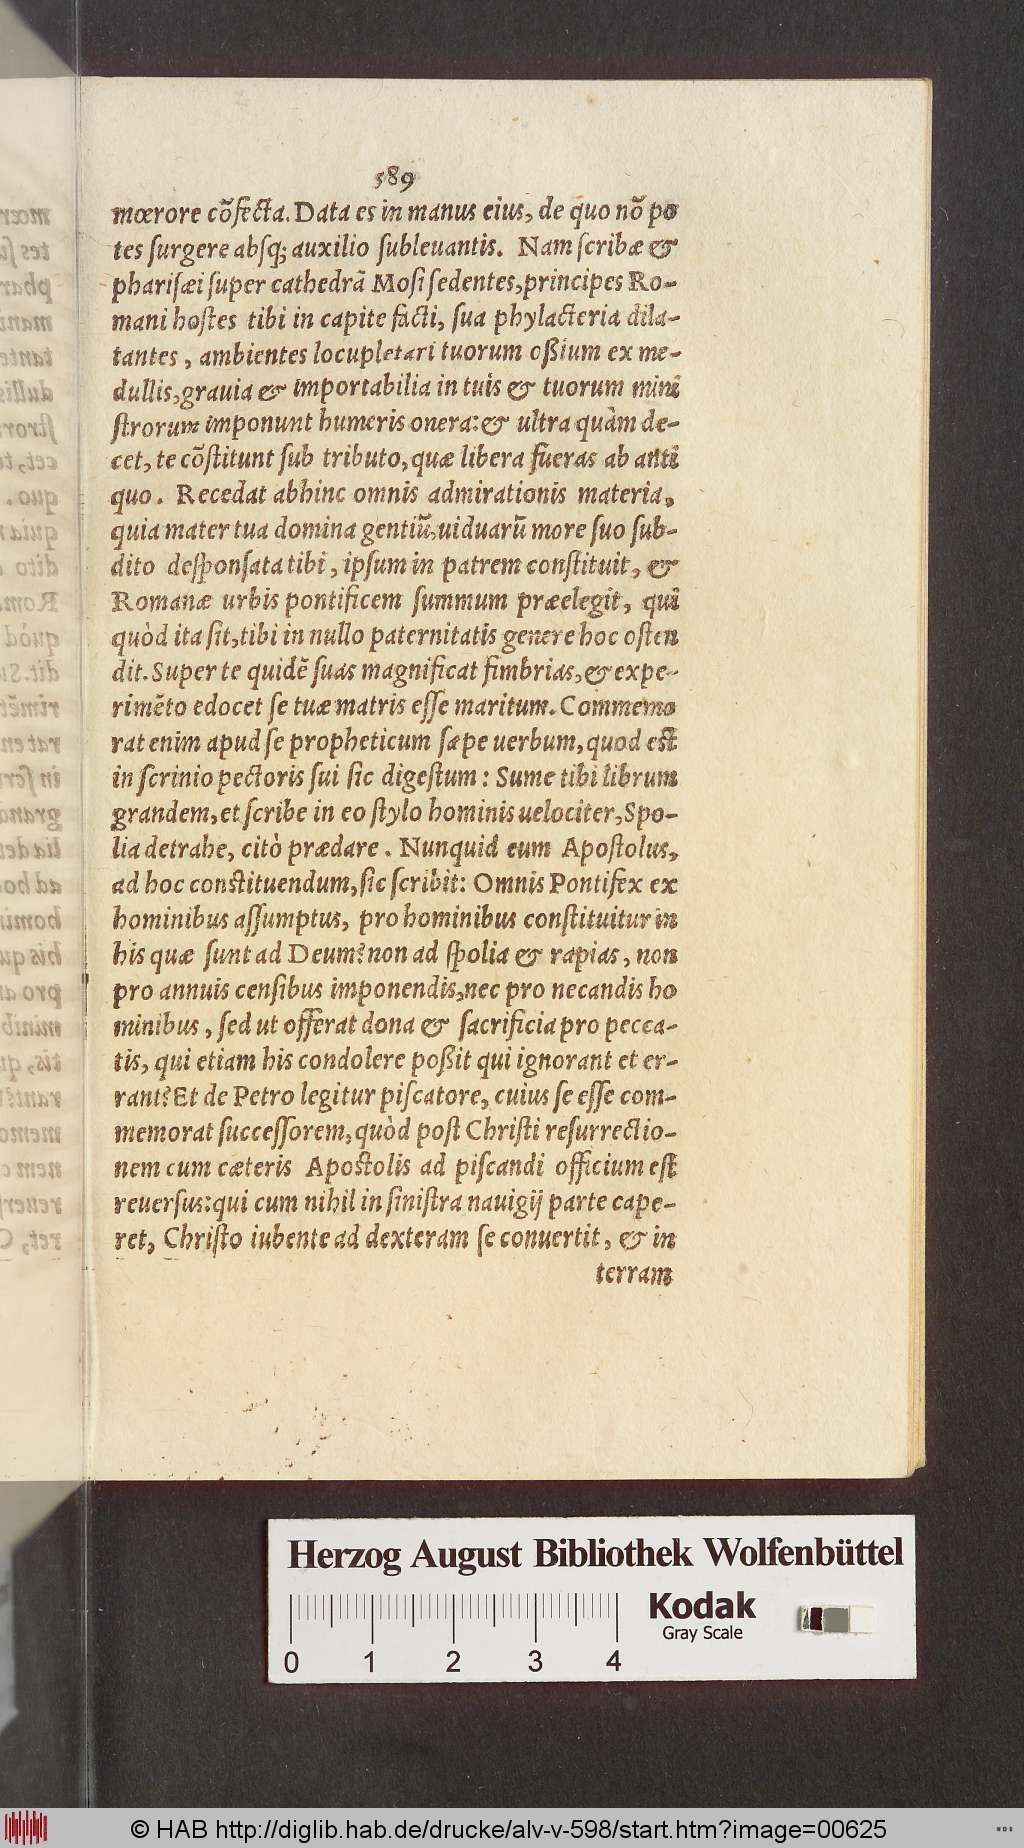 589
mœrore cõfecta. Data es in manus eius, de quo nõ po
tes ſurgere abſq; auxilio ſubleuantis. Nam ſcribæ &
phariſæi ſuper cathedrã Moſi ſedentes, principes Ro-
mani hoſtes tibi in capite facti, ſua phylacteria dila-
tantes, ambientes locupletari tuorum oßium ex me-
dullis, grauia & importabilia in tuis & tuorum mini
ſtrorum imponunt humeris onera: & ultra quàm de-
cet, te cõſtitunt ſub tributo, quæ libera fueras ab anti
quo. Recedat abhinc omnis admirationis materia,
quia mater tua domina gentiũ, uiduarũ more ſuo ſub-
dito deſponſata tibi, ipſum in patrem conſtituit, &
Romanæ urbis pontificem ſummum præelegit, qui
quòd ita ſit, tibi in nullo paternitatis genere hoc oſten
dit. Super te quidẽ ſuas magnificat fimbrias, & expe-
rimẽto edocet ſe tuæ matris eſſe maritum. Commemo
rat enim apud ſe propheticum ſæpe uerbum, quod eſt
in ſcrinio pectoris ſui ſic digeſtum: Sume tibi librum
grandem, et ſcribe in eo ſtylo hominis uelociter, Spo-
lia detrahe, citò prædare. Nunquid eum Apoſtolus,
ad hoc conſtituendum, ſic ſcribit: Omnis Pontifex ex
hominibus aſſumptus, pro hominibus conſtituitur in
his quæ ſunt ad Deum? non ad ſpolia & rapias, non
pro annuis cenſibus imponendis, nec pro necandis ho
minibus, ſed ut offerat dona & ſacrificia pro pecca-
tis, qui etiam his condolere poßit qui ignorant et er-
rant? Et de Petro legitur piſcatore, cuius ſe eſſe com-
memorat ſucceſſorem, quòd poſt Chriſti reſurrectio-
nem cum cæteris Apoſtolis ad piſcandi officium eſt
reuerſus: qui cum nihil in ſiniſtra nauigij parte cape-
ret, Chriſto iubente ad dexteram ſe conuertit, & in
terram
Herzog August Bibliothek Wolfenbüttel
Kodak
Gray Scale
0 1 2 3 4
© HAB http://diglib.hab.de/drucke/alv-v-598/start.htm?image=00625